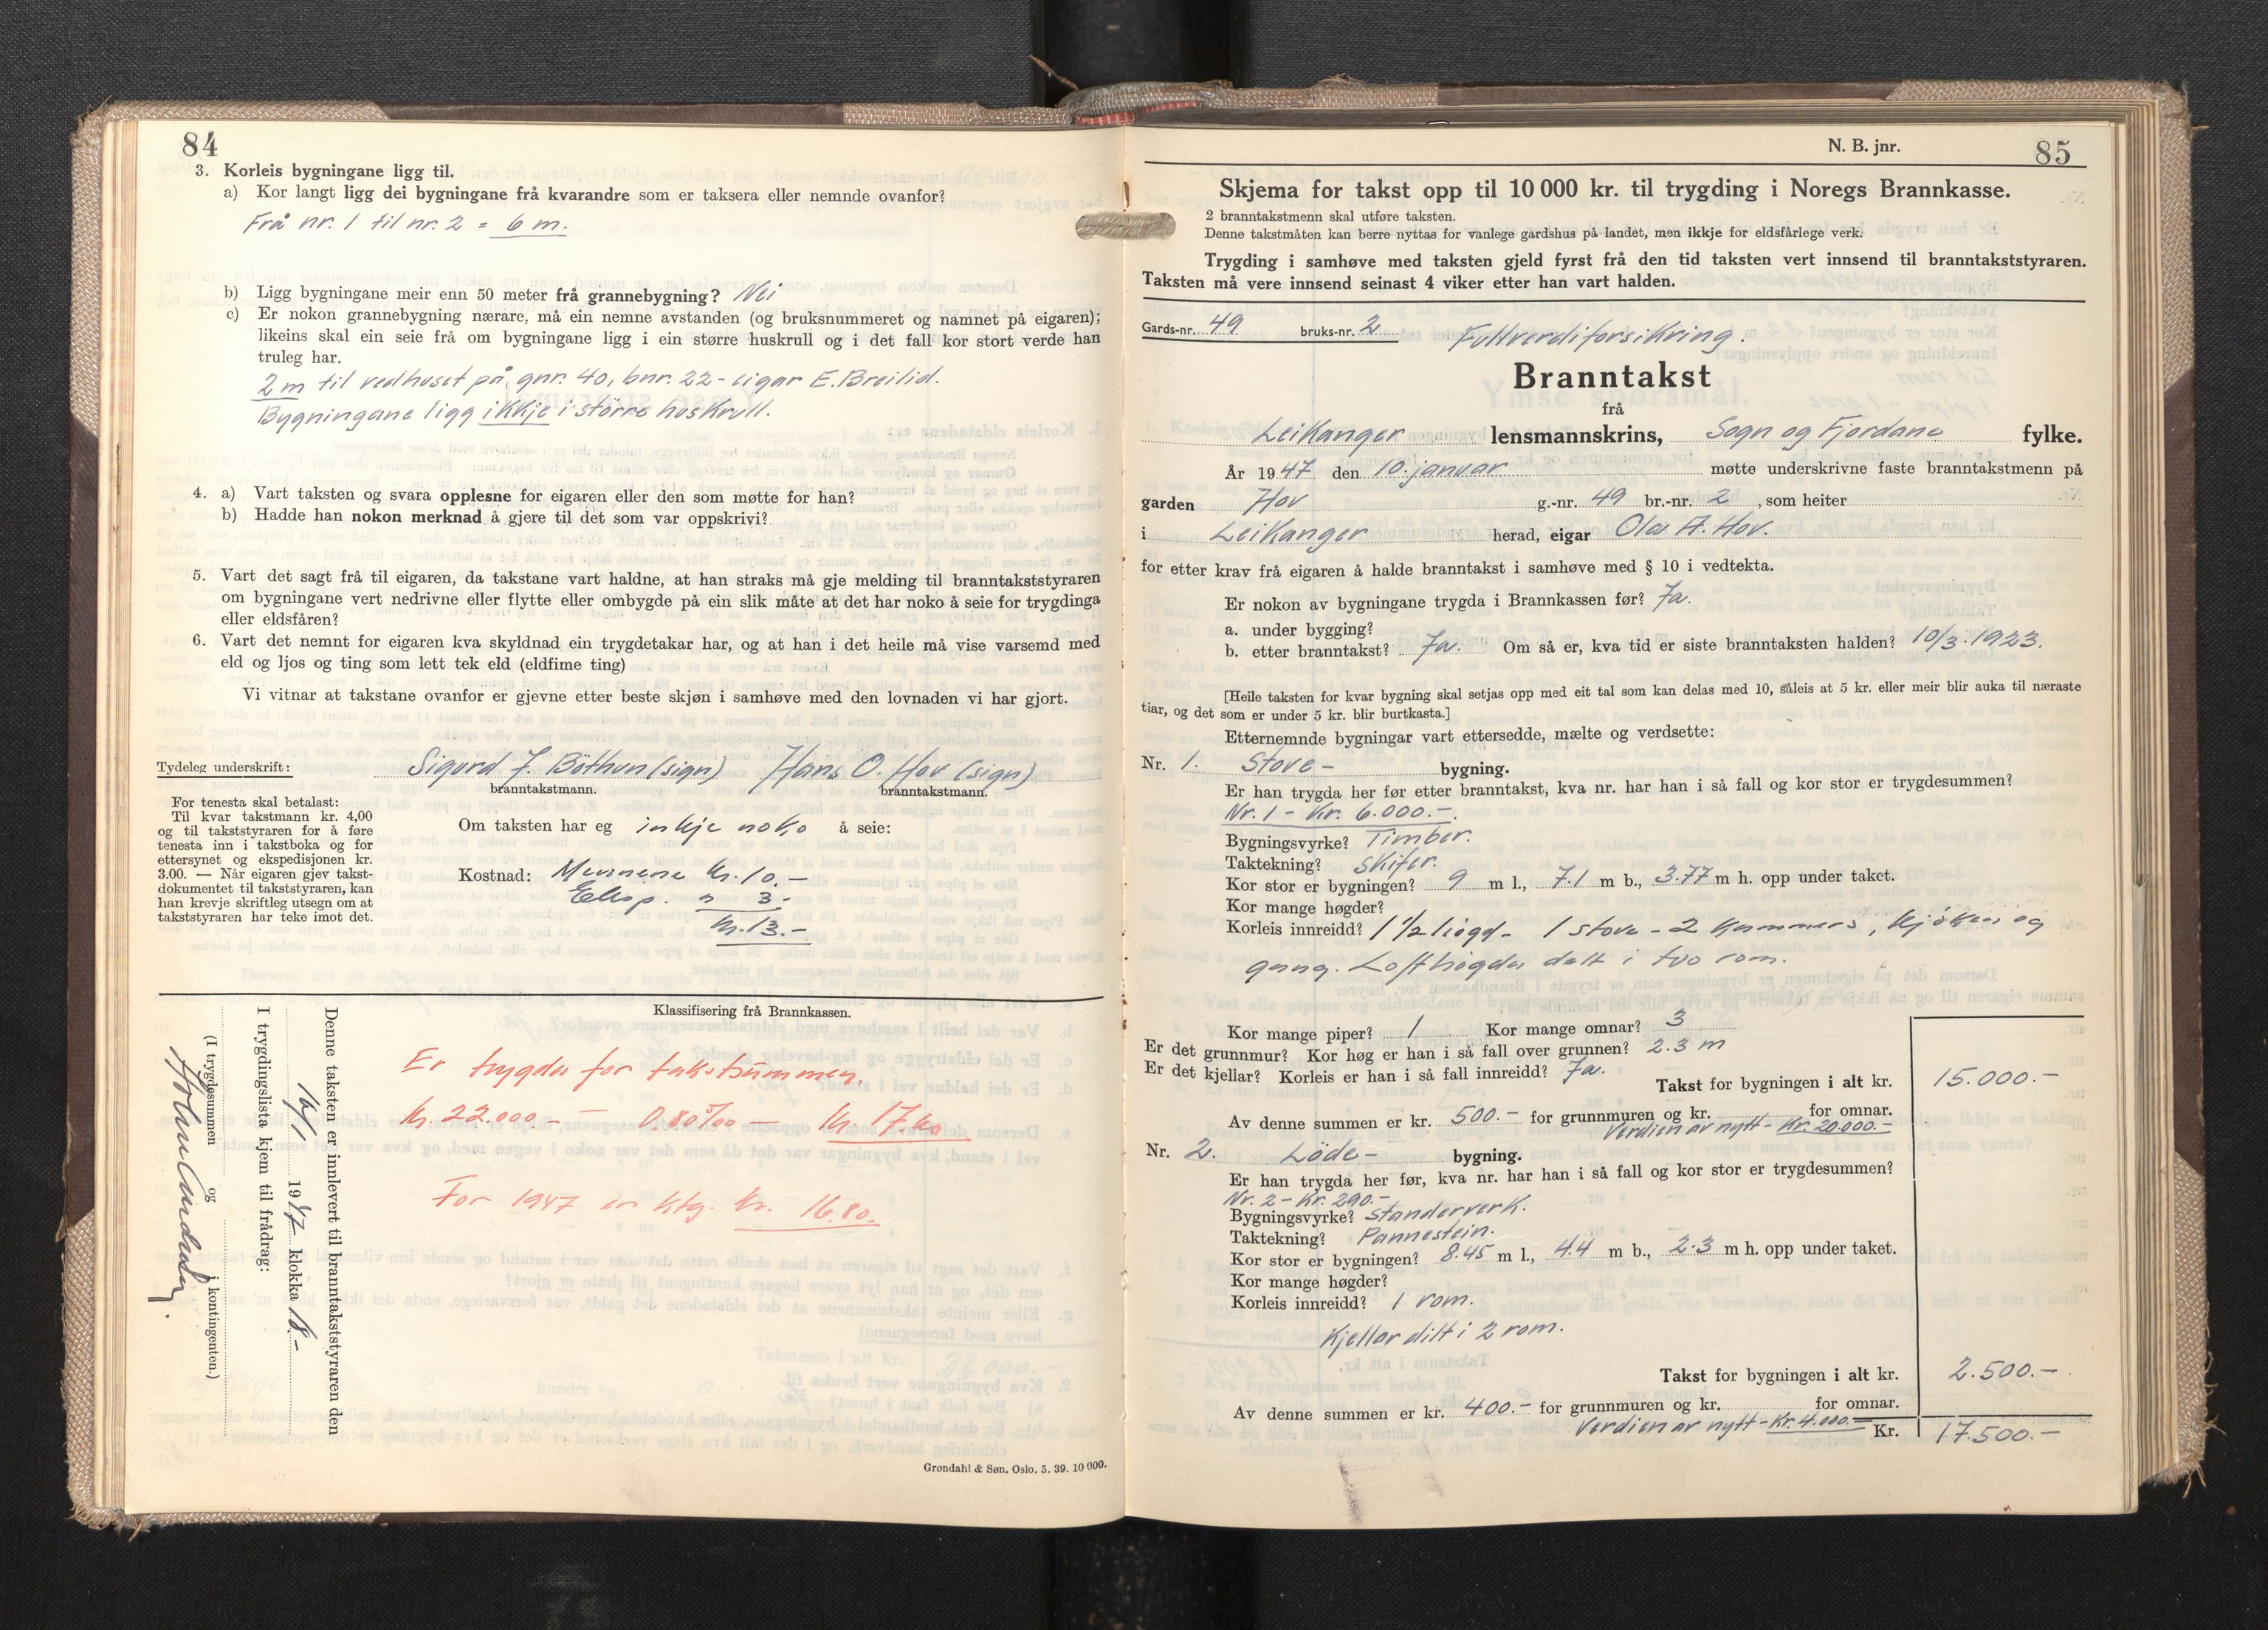 84
3. Korleis bygningane ligg til.
a) Kor langt ligg dei bygningane frå kvarandre som er taksera eller nemnde ovanfor?
Frå nr. 1 til nr. 2 = 6 m.
b) Ligg bygningane meir enn 50 meter frå grannebygning? Nei
c) Er nokon grannebygning nærare, må ein nemne avstanden (og bruksnummeret og namnet på eigaren);
likeins skal ein seie frå om bygningane ligg i ein større huskrull og i det fall kor stort verde han
truleg har.
2 m til vedhuset på gnr. 40, bnr. 22 - eigar E. Breilid.
Bygningane ligg ikkje i større huskrull.
4. a) Vart taksten og svara opplesne for eigaren eller den som møtte for han?
b) Hadde han nokon merknad å gjere til det som var oppskrivi?
5. Vart det sagt frå til eigaren, da takstane vart haldne, at han straks må gje melding til branntakststyraren
om bygningane vert nedrivne eller flytte eller ombygde på ein slik måte at det har noko å seie for trygdinga
eller eldsfåren?
6. Vart det nemnt for eigaren kva skyldnad ein trygdetakar har, og at han i det heile må vise varsemd med
eld og ljos og ting som lett tek eld (eldfime ting)
Vi vitnar at takstane ovanfor er gjevne etter beste skjøn i samhøve med den lovnaden vi har gjort.
Tydeleg underskrift: Sigurd J. Böthun (sign) Hans O. Hov (sign)
branntakstmann. branntakstmann.
For tenesta skal betalast:
Til kvar takstmann kr. 4,00
og til takststyraren for å føre
tenesta inn i takstboka og for
ettersynet og ekspedisjonen kr.
3.00. — Når eigaren gjev takst-
dokumentet til takststyraren, kan
han krevje skriftleg utsegn om at
takststyraren har teke imot det.
Om taksten har eg inkje noko å seie:
Kostnad: Mennene kr. 10.-
Eksp. " 3.-
kr. 13.-
Klassifisering frå Brannkassen.
Er trygda for takstsummen,
kr. 22.000.- — 0.80 ‰ — kr. 17.60
For 1947 er ktg. kr. 16.80.
Denne taksten er innlevert til branntakststyraren den
16/1 1947 klokka 18.-
I trygdingslista kjem til frådrag:
(I trygdesummen og i kontingenten.)
Grøndahl & Søn. Oslo. 5. 39. 10 000.
N. B. jnr. 85
Skjema for takst opp til 10 000 kr. til trygding i Noregs Brannkasse.
2 branntakstmenn skal utføre taksten.
Denne takstmåten kan berre nyttas for vanlege gardshus på landet, men ikkje for eldsfårlege verk.
Trygding i samhøve med taksten gjeld fyrst frå den tid taksten vert innsend til branntakststyraren.
Taksten må vere innsend seinast 4 viker etter han vart halden.
Gards-nr. 49 bruks-nr. 2 Fullverdiforsikring.
Branntakst
frå
Leikanger lensmannskrins, Sogn og Fjordane fylke.
År 1947 den 10. januar møtte underskrivne faste branntakstmenn på
garden Hov g.-nr. 49 br.-nr. 2, som heiter
i Leikanger herad, eigar Ola A. Hov.
for etter krav frå eigaren å halde branntakst i samhøve med § 10 i vedtekta.
Er nokon av bygningane trygda i Brannkassen før? Ja.
a. under bygging?
b. etter branntakst? Ja. Om så er, kva tid er siste branntaksten halden? 10/3. 1923.
[Heile taksten for kvar bygning skal setjas opp med eit tal som kan delas med 10, såleis at 5 kr. eller meir blir auka til næraste
tiar, og det som er under 5 kr. blir burtkasta.]
Etternemnde bygningar vart ettersedde, mælte og verdsette:
Nr. 1. Stove - bygning.
Er han trygda her før etter branntakst, kva nr. har han i så fall og kor stor er trygdesummen?
Nr. 1 - Kr. 6.000.-
Bygningsvyrke? Timber.
Taktekning? Skifer.
Kor stor er bygningen? 9 m l., 7.1 m b., 3.77 m h. opp under taket.
Kor mange høgder?
Korleis innreidd? 1 1/2 högd - 1 stove - 2 kammers, kjøken og
gang. Lofthögda delt i tvo rom.
Kor mange piper? 1 Kor mange omnar? 3
Er det grunnmur? Kor høg er han i så fall over grunnen? 2.3 m
Er det kjellar? Korleis er han i så fall innreidd? Ja.
Takst for bygningen i alt kr. 15.000.-
Av denne summen er kr. 500.- for grunnmuren og kr. for omnar.
Verdien av nytt - Kr. 20.000.-
Nr. 2. Löde - bygning.
Er han trygda her før, kva nr. har han i så fall og kor stor er trygdesummen?
Nr. 2 - Kr. 290.-
Bygningsvyrke? Standerverk.
Taktekning? Pannestein.
Kor stor er bygningen? 8.45 m l., 4.4 m b., 2.3 m h. opp under taket.
Kor mange høgder?
Korleis innreidd? 1 rom.
Kjellar dilt i 2 rom.
Takst for bygningen i alt kr. 2.500.-
Av denne summen er kr. 400.- for grunnmuren og kr. for omnar.
Verdien av nytt - Kr. 4.000.-
Kr. 17.500.-